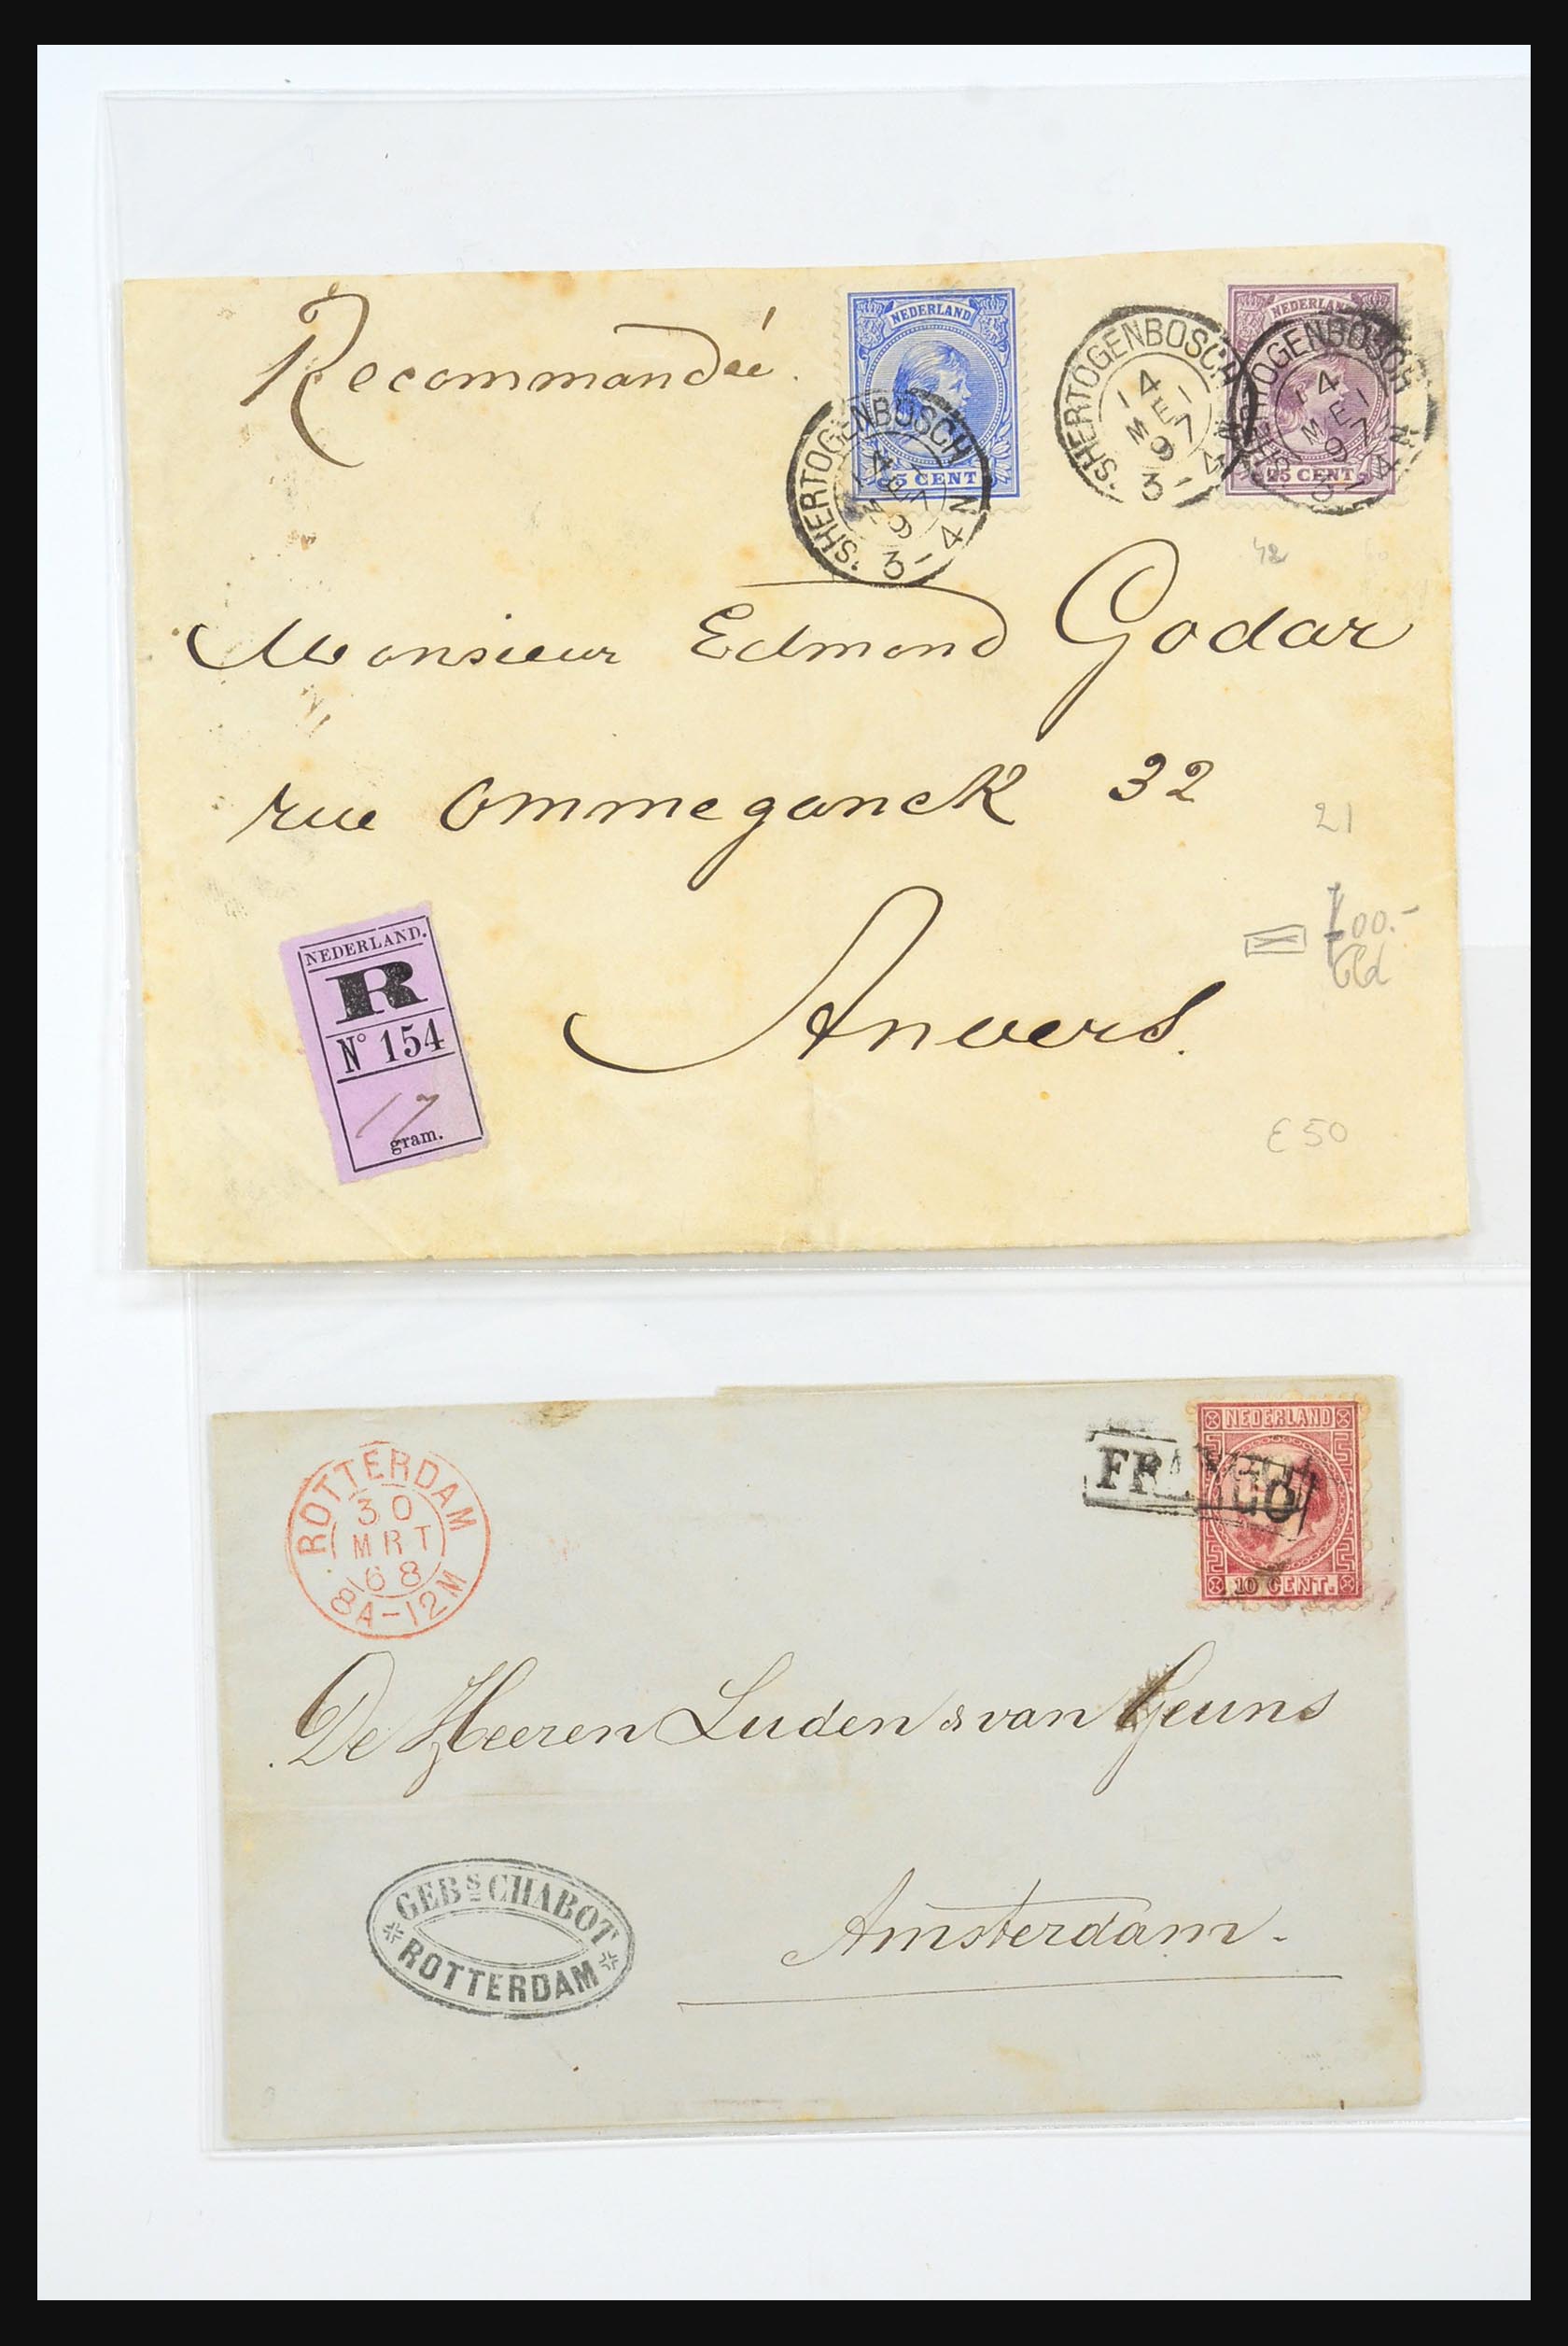 Recommandée.
NEDERLAND
5 CENT
'SHERTOGENBOSCH
14 MEI 97
3-4 N
'SHERTOGENBOSCH
14 MEI 97
3-4 N
NEDERLAND
25 CENT
'SHERTOGENBOSCH
14 MEI 97
3-4 N
42
Monsieur Edmond Godar
rue Ommeganck 32
21
Anvers.
NEDERLAND.
R
N° 154
17
gram.
€50
ROTTERDAM
30
MRT
68
8A-12M
FRANCO
NEDERLAND
10 CENT.
De Heeren Luden & van Geuns
Amsterdam.
GEBS CHABOT
ROTTERDAM